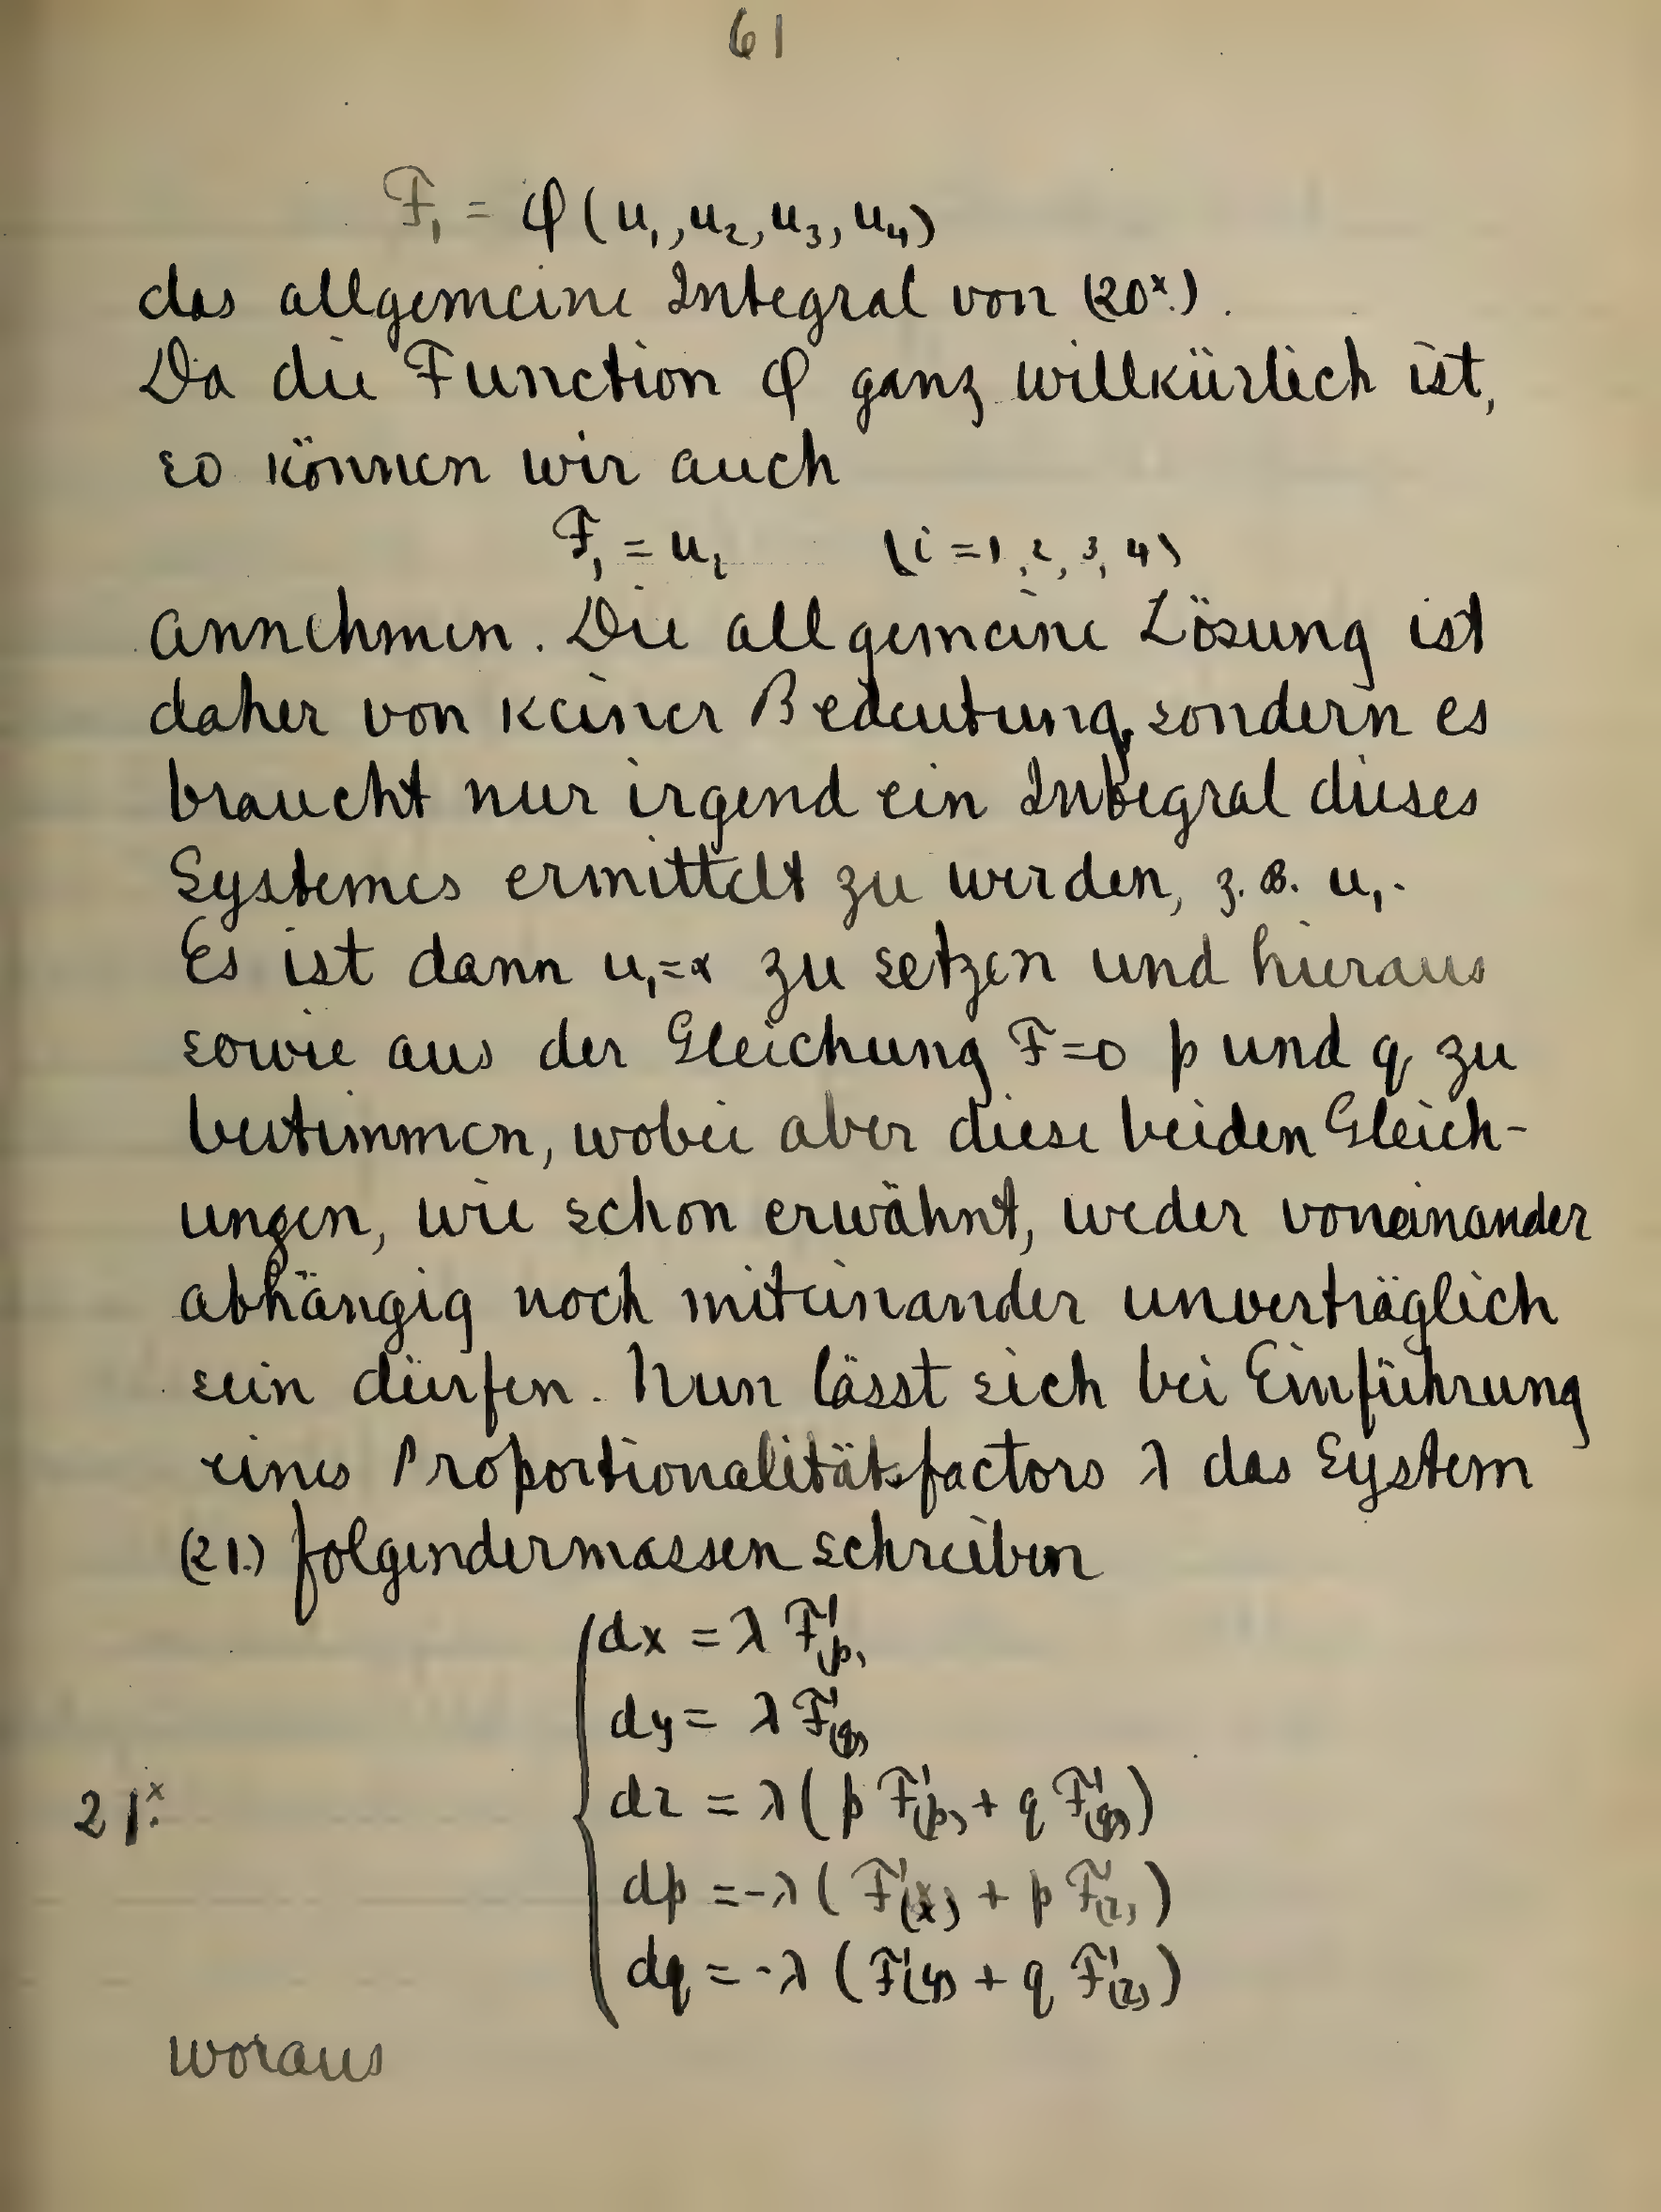 61
F₁ = φ(u₁,u₂,u₃,u₄)
das allgemeine Integral von (20ˣ.).
Da die Function φ ganz willkürlich ist,
so können wir auch
F₁ = uᵢ (i = 1, 2, 3, 4)
annehmen. Die allgemeine Lösung ist
daher von keiner Bedeutung, sondern es
braucht nur irgend ein Integral dieses
Systemes ermittelt zu werden, z. B. u₁.
Es ist dann u₁=α zu setzen und hieraus
sowie aus der Gleichung F=0 p und q zu
bestimmen, wobei aber diese beiden Gleich-
ungen, wie schon erwähnt, weder voneinander
abhängig noch miteinander unverträglich
sein dürfen. Nun lässt sich bei Einführung
eines Proportionalitätsfactors λ das System
(21.) folgendermassen schreiben
dx = λ F'(p)
dy = λ F'(q)
21ˣ. dz = λ(p F'(p) + q F'(q))
dp = -λ(F'(x) + p F'(z))
dq = -λ(F'(y) + q F'(z))
woraus